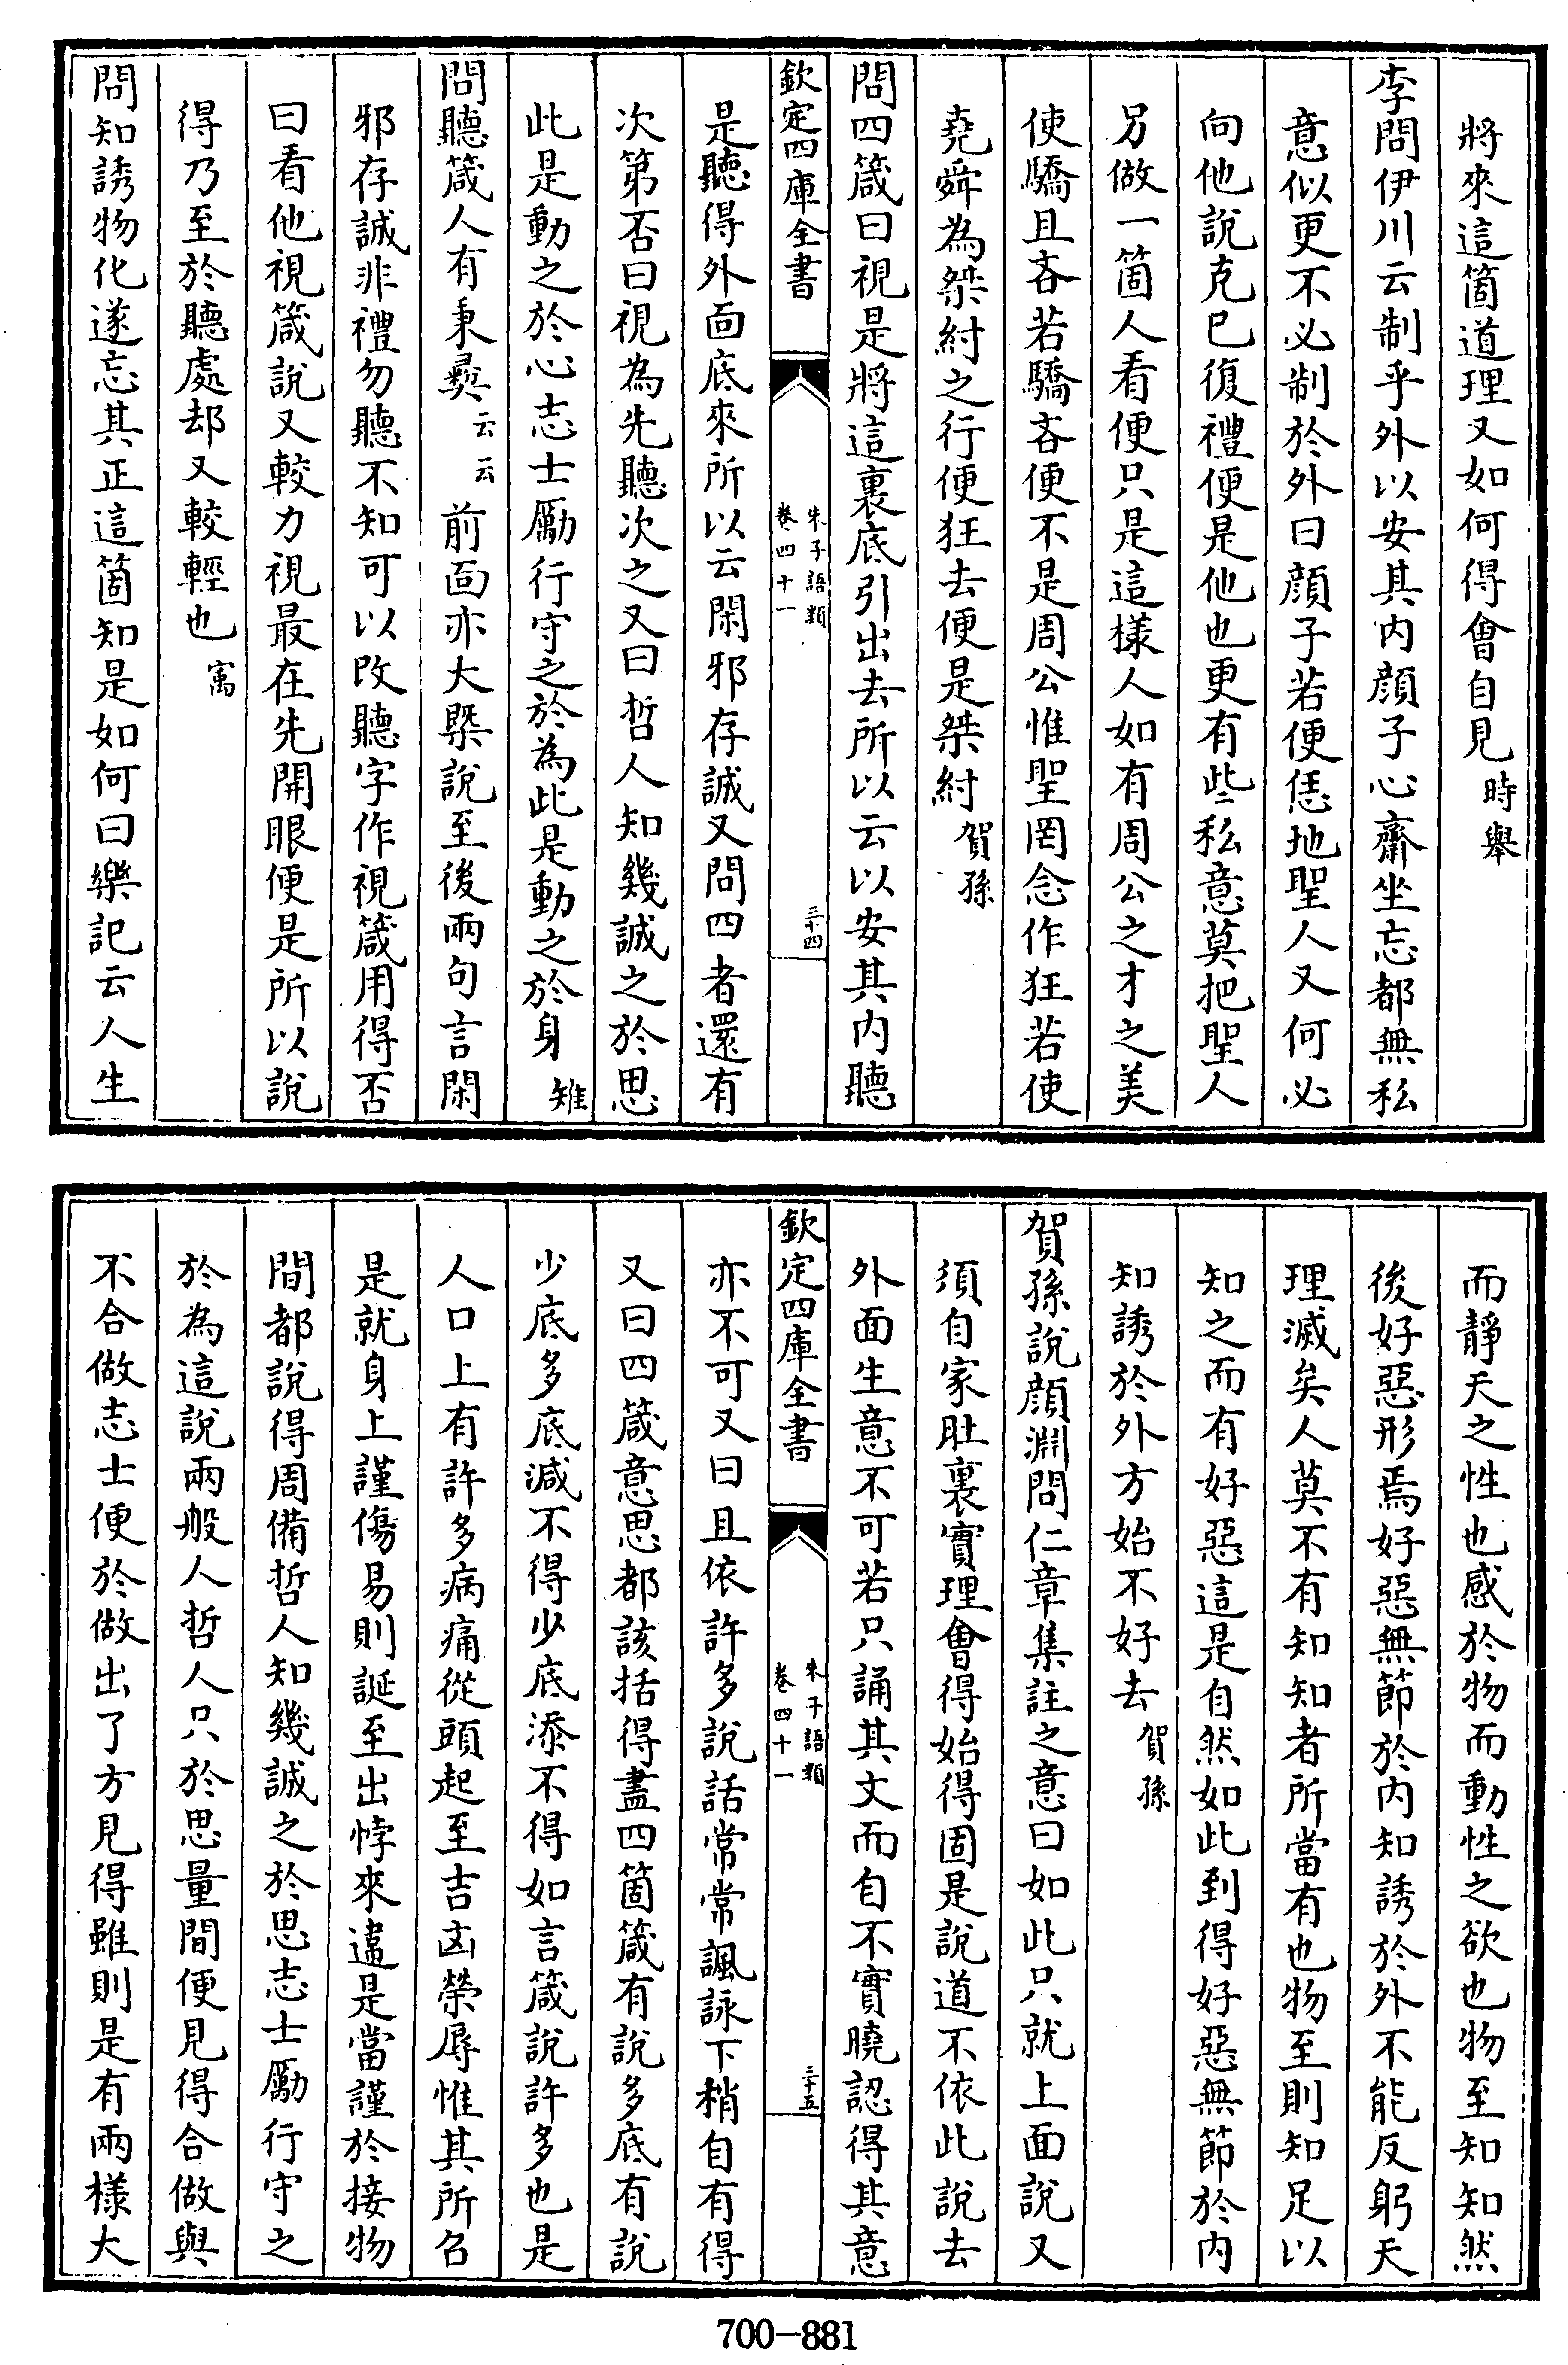 將來這箇道理又如何得會自見時舉
李問伊川云制乎外以安其内顔子心齋坐忘都無私
意似更不必制於外曰顔子若便恁地聖人又何必
向他說克已復禮便是他也更有些私意莫把聖人
另做一箇人看便只是這樣人如有周公之才之美
使驕且吝若驕吝便不是周公惟聖罔念作狂若使
堯舜為桀紂之行便狂去便是桀紂賀孫
問四箴曰視是將這裏底引出去所以云以安其内聽
欽定四庫全書
朱子語類
卷四十一
三十四
是聽得外面底來所以云閑邪存誠又問四者還有
次第否曰視為先聽次之又曰哲人知幾誠之於思
此是動之於心志士勵行守之於為此是動之於身雉
問聽箴人有秉彞云云前面亦大槩說至後兩句言閑
邪存誠非禮勿聽不知可以改聽字作視箴用得否
曰看他視箴說又較力視最在先開眼便是所以說
得乃至於聽處却又較輕也㝢
問知誘物化遂忘其正這箇知是如何曰樂記云人生
而靜天之性也感於物而動性之欲也物至知知然
後好惡形焉好惡無節於内知誘於外不能反躬天
理滅矣人莫不有知知者所當有也物至則知足以
知之而有好惡這是自然如此到得好惡無節於内
知誘於外方始不好去賀孫
賀孫說顔淵問仁章集註之意曰如此只就上面說又
須自家肚裏實理會得始得固是說道不依此說去
外面生意不可若只誦其文而自不實曉認得其意
欽定四庫全書
朱子語類
卷四十一
三十五
亦不可又曰且依許多說話常常諷詠下稍自有得
又曰四箴意思都該括得盡四箇箴有說多底有說
少底多底減不得少底添不得如言箴說許多也是
人口上有許多病痛從頭起至吉凶榮辱惟其所召
是就身上謹傷易則誕至出悖來違是當謹於接物
間都說得周備哲人知幾誠之於思志士勵行守之
於為這說兩般人哲人只於思量間便見得合做與
不合做志士便於做出了方見得雖則是有兩樣大
700-881